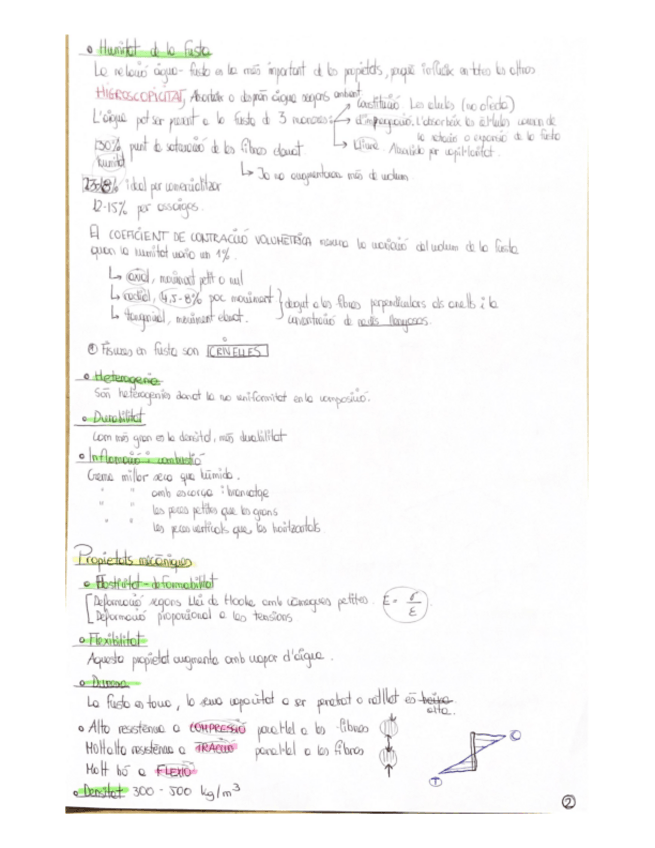 • Humitat de la fusta
La relació aigua-fusta es la més important de les propietats, perquè influeix en totes les altres
HIGROSCOPICITAT, Absorbir o desprèn aigua segons ambient
L'aigua pot ser present a la fusta de 3 maneres: → Constitució. Les cèl·lules (no afecta)
→ d'impregnació. L'absorbeix les cèl·lules
la retracció o expansió de la fusta
→ Lliure. Absorbida per capil·laritat.
30% punt de saturació de les fibres
humitat
↳ Ja no augmentarà més de volum
ideal per comercialitzar
12-15% per assaigs.
El COEFICIENT DE CONTRACCIÓ VOLUMÈTRICA mesura la variació del volum de la fusta
quan la humitat varia un 1%.
↳ axial, moviment petit o nul
↳ radial, 4,5-8% poc moviment
↳ tangencial, moviment elevat.
degut a les fibres perpendiculars als anells i la
concentració de radis llenyosos.
Fissures en fusta son CRNELLES
• Heterogenia
Són heterogenies donat la no uniformitat en la composició.
• Durabilitat
com més gran es la densitat, més durabilitat
• Inflamació i combustió
Crema millor seca que humida.
" " amb escorça i brancatge
" " les peces petites que les grans
" " les peces verticals que les horitzontals
Propietats mecàniques
• Elasticitat-deformabilitat
Deformació segons Llei de Hooke amb càrregues petites. E = σ/ε
Deformació proporcional a les tensions
• Flexibilitat
Aquesta propietat augmenta amb vapor d'aigua.
• Duresa
La fusta es tova, la seva capacitat a ser penetrat o ratllat és baixa
alta.
• Alta resistència a COMPRESSIÓ paral·lel a les fibres
Molt alta resistència a TRACCIÓ paral·lel a les fibres
Molt bó a FLEXIÓ
C
T
• Densitat 300 - 500 kg/m³
2